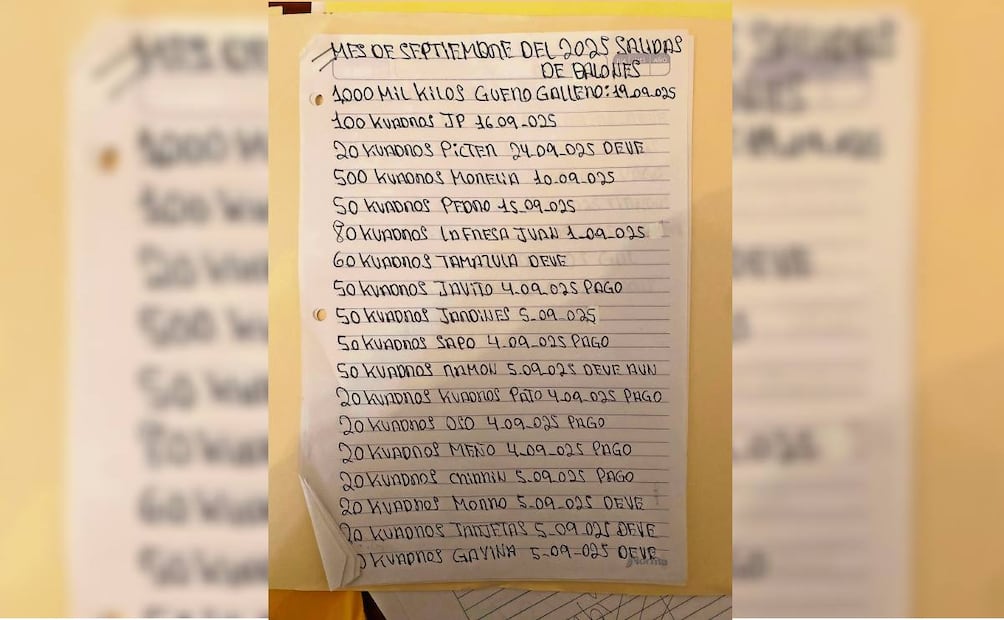 MES DE SEPTIEMBRE DEL 2025 SALIDAS
DE BALONES
1,000 MIL KILOS GUERO GALLERO: 19.09.025
100 KUADROS JP 16.09_025
20 KUADROS PICTER 24.09_025 DEVE
500 KUADROS MORELIA 10.09.025
50 KUADROS PEDRO 15_09_025
80 KUADROS LA FRESA JUAN 1_09_025
60 KUADROS TAMAZULA DEVE
50 KUADROS JAVITO 4.09_025 PAGO
50 KUADROS JARDINES 5_09_025
50 KUADROS SAPO 4_09_025 PAGO
50 KUADROS RAMON 5.09_025 DEVE AUN
20 KUADROS KUADROS PATO 4.09_025 PAGO
20 KUADROS OSO 4.09_025 PAGO
20 KUADROS MEÑO 4_09_025 PAGO
20 KUADROS 5_09_025 PAGO
20 KUADROS MORRO 5_09_025 DEVE
20 KUADROS TARJETAS 5_09_025 DEVE
0 KUADROS GAVINA 5_09_025 DEVE
norma